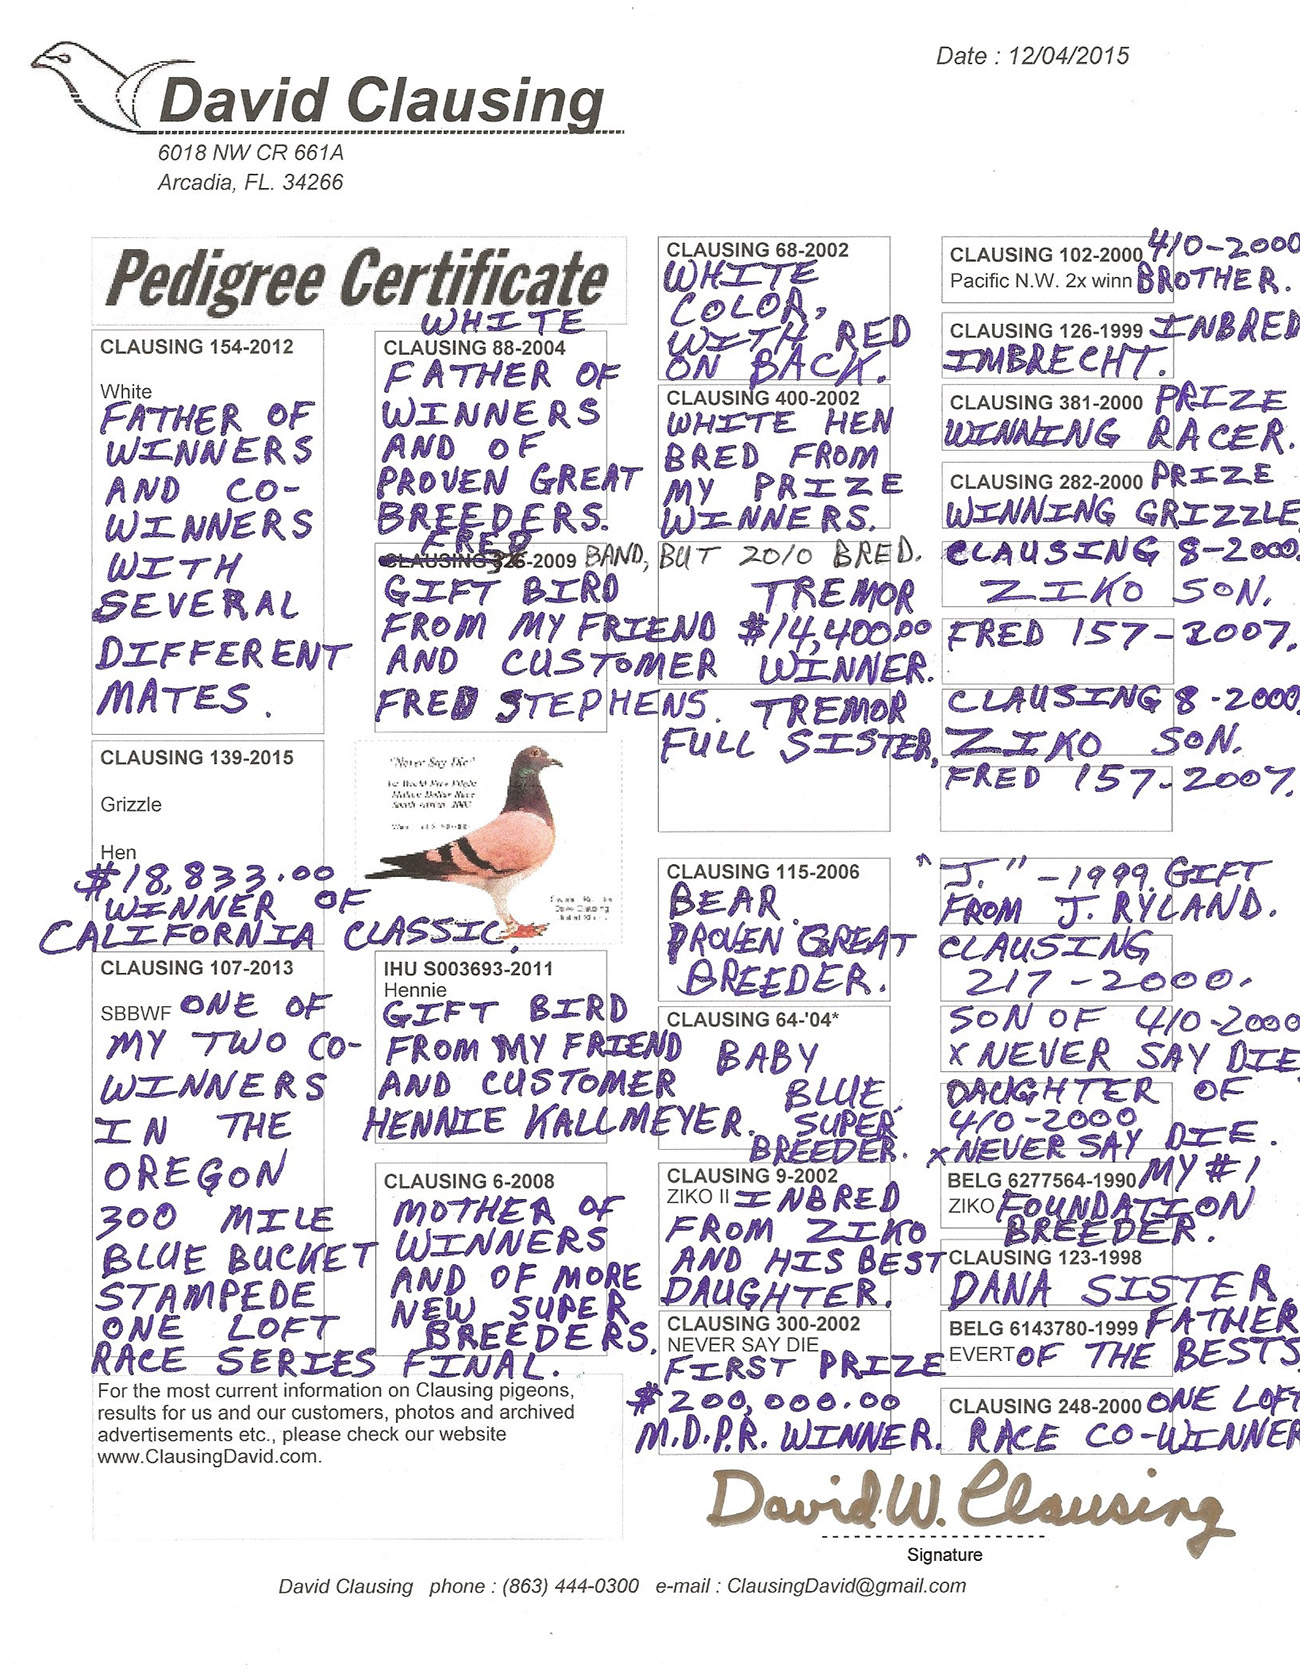 Date : 12/04/2015
David Clausing
6018 NW CR 661A
Arcadia, FL. 34266
Pedigree Certificate
CLAUSING 154-2012
White
FATHER OF
WINNERS
AND CO-
WINNERS
WITH
SEVERAL
DIFFERENT
MATES.
CLAUSING 139-2015
Grizzle
Hen
$18,833.00
WINNER OF
CALIFORNIA CLASSIC.
CLAUSING 107-2013
SBBWF ONE OF
MY TWO CO-
WINNERS
IN THE
OREGON
300 MILE
BLUE BUCKET
STAMPEDE
ONE LOFT
RACE SERIES FINAL.
For the most current information on Clausing pigeons,
results for us and our customers, photos and archived
advertisements etc., please check our website
www.ClausingDavid.com.
WHITE
CLAUSING 88-2004
FATHER OF
WINNERS
AND OF
PROVEN GREAT
BREEDERS.
FRED
CLAUSING 326-2009 BAND, BUT 2010 BRED.
GIFT BIRD
FROM MY FRIEND
AND CUSTOMER
FRED STEPHENS.
"Never Say Die"
1st World Free Flight
Million Dollar Race
South Africa 2003
IHU S003693-2011
Hennie
GIFT BIRD
FROM MY FRIEND
AND CUSTOMER
HENNIE KALLMEYER.
CLAUSING 6-2008
MOTHER OF
WINNERS
AND OF MORE
NEW SUPER
BREEDERS.
CLAUSING 68-2002
WHITE
COLOR,
WITH RED
ON BACK.
CLAUSING 400-2002
WHITE HEN
BRED FROM
MY PRIZE
WINNERS.
TREMOR
$14,400.00
WINNER.
TREMOR
FULL SISTER,
CLAUSING 115-2006
BEAR.
PROVEN GREAT
BREEDER.
CLAUSING 64-'04*
BABY
BLUE
SUPER
BREEDER.
CLAUSING 9-2002
ZIKO II INBRED
FROM ZIKO
AND HIS BEST
DAUGHTER.
CLAUSING 300-2002
NEVER SAY DIE
FIRST PRIZE
$200,000.00
M.D.P.R. WINNER.
CLAUSING 102-2000 410-2000
Pacific N.W. 2x winn BROTHER.
CLAUSING 126-1999 INBRED
IMBRECHT.
CLAUSING 381-2000 PRIZE
WINNING RACER.
CLAUSING 282-2000 PRIZE
WINNING GRIZZLE
CLAUSING 8-2000,
ZIKO SON.
FRED 157-2007.
CLAUSING 8-2000,
ZIKO SON.
FRED 157-2007.
"J." -1999. GIFT
FROM J. RYLAND.
CLAUSING
217-2000.
SON OF 410-2000
X NEVER SAY DIE
DAUGHTER OF
410-2000
X NEVER SAY DIE.
BELG 6277564-1990 MY #1
ZIKO FOUNDATION
BREEDER.
CLAUSING 123-1998
DANA SISTER
BELG 6143780-1999 FATHER
EVERT OF THE BESTS
CLAUSING 248-2000 ONE LOFT
RACE CO-WINNER
David W. Clausing
Signature
David Clausing phone : (863) 444-0300 e-mail : ClausingDavid@gmail.com